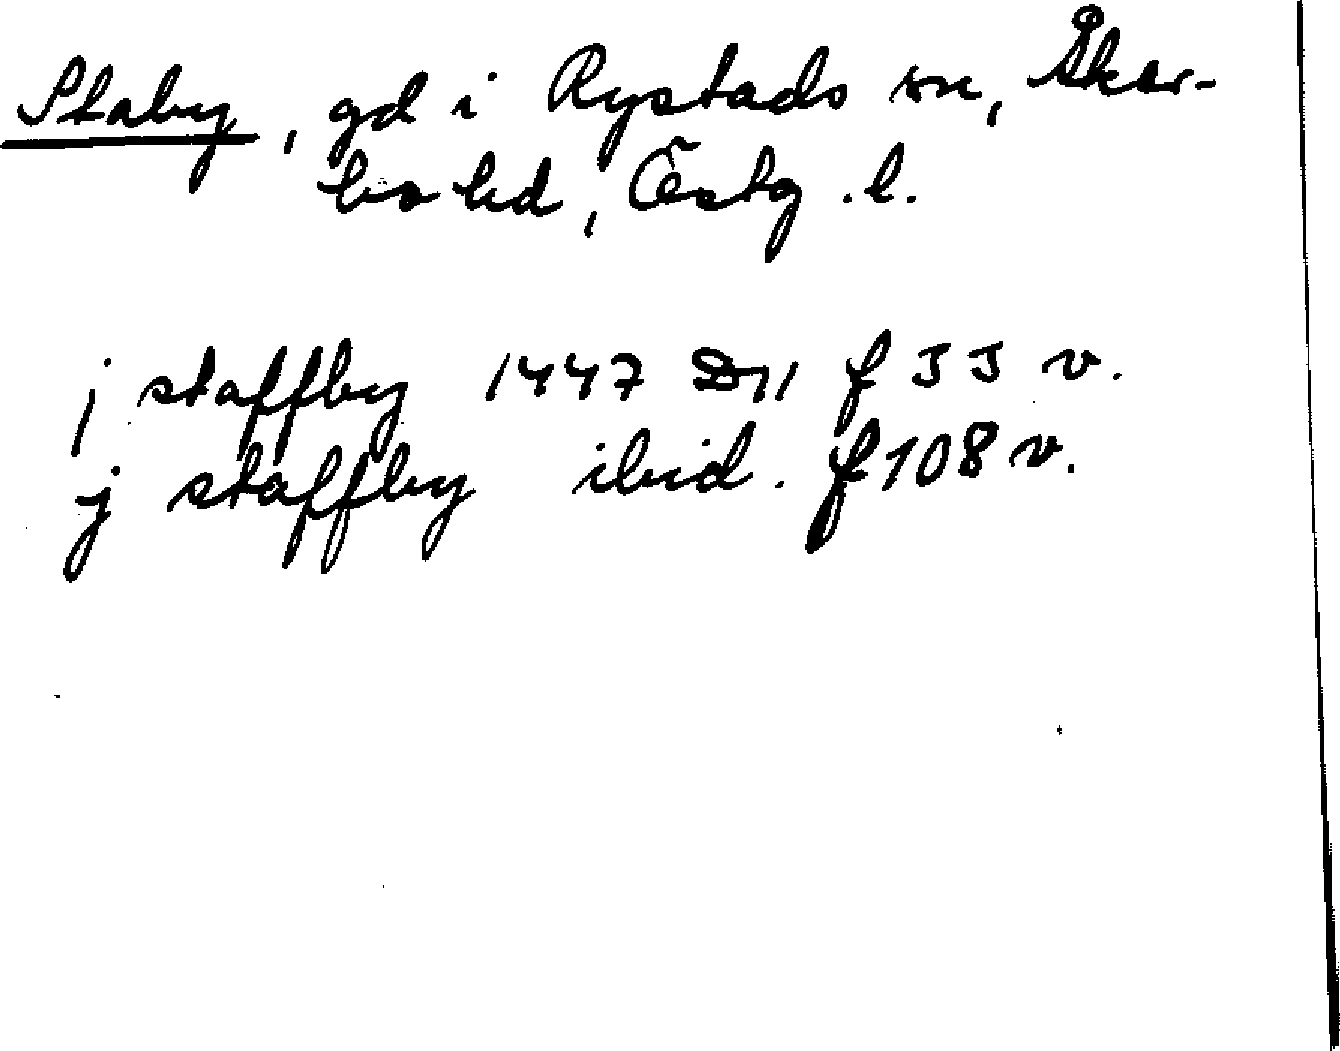 Staby, gd i Rystads sn, Åker-
bo hd, Östg. l.
j staffby 1447 D11 f 33 v.
j staffby ibid. f 108 v.